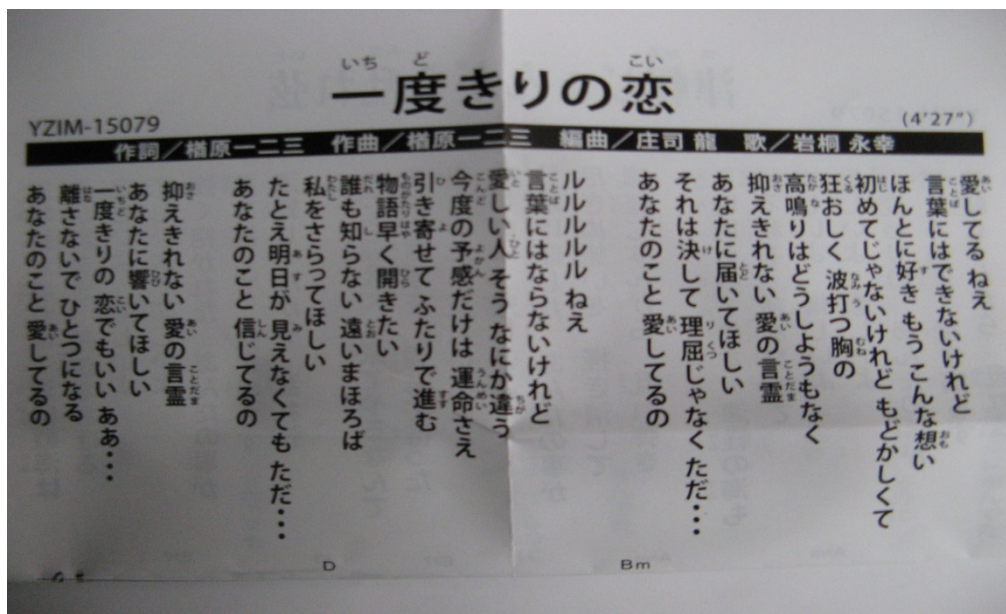 一度きりの恋
YZIM-15079
(4'27")
作詞／楢原一二三 作曲／楢原一二三 編曲／庄司 龍 歌／岩桐 永幸
愛してる ねえ
言葉にはできないけれど
ほんとに好き もう こんな想い
初めてじゃないけれど もどかしくて
狂おしく 波打つ胸の
高鳴りはどうしようもなく
抑えきれない 愛の言霊
あなたに届いてほしい
それは決して 理屈じゃなく ただ・・・
あなたのこと 愛してるの
ルルルルル ねえ
言葉にはならないけれど
愛しい人 そう なにか違う
今度の予感だけは 運命さえ
引き寄せて ふたりで進む
物語早く開きたい
誰も知らない 遠いまほろば
私をさらってほしい
たとえ明日が 見えなくても ただ・・・
あなたのこと 信じてるの
抑えきれない 愛の言霊
あなたに響いてほしい
一度きりの 恋でもいい ああ・・・
離さないで ひとつになる
あなたのこと 愛してるの
D
Bm